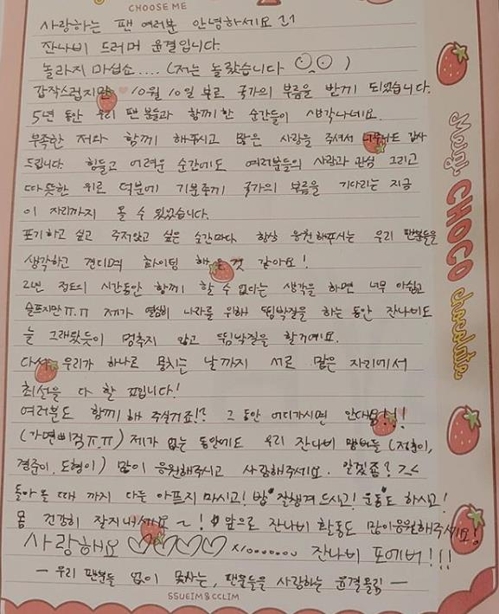 CHOOSE ME
사랑하는 팬 여러분 안녕하세요
잔나비 드러머 윤결입니다.
놀라지 마십쇼.... (저는 놀랐습니다
갑작스럽지만 10월 10일 부로 국가의 부름을 받게 되었습니다.
5년 동안 우리 팬 분들과 함께한 순간들이 생각나네요.
부족한 저와 함께 해주시고 많은 사랑을 주셔서 너무나도 감사
드립니다. 힘들고 어려운 순간에도 여러분들의 사랑과 관심 그리고
따뜻한 위로 덕분에 기분좋게 국가의 부름을 기다리는 지금
이 자리까지 올 수 있었습니다.
포기하고 싶고 주저앉고 싶은 순간마다 항상 응원해주시는 우리 팬분들을
생각하고 견디며 화이팅 해온것 같아요!
2년 정도의 시간동안 함께 할 수 없다는 생각을 하면 너무 아쉽고
슬프지만 ㅠ.ㅠ 제가 열심히 나라를 위해 뜀박질을 하는 동안 잔나비도
늘 그래왔듯이 멈추지 않고 뜀박질을 할거에요.
다시 우리가 하나로 뭉치는 날까지 서로 많은 자리에서
최선을 다 할 겁니다!
여러분도 함께 해 주실거죠!? 그 동안 어디가시면 안대욤!!!
(가면 삐짐 ㅠ.ㅠ) 제가 없는 동안에도 우리 잔나비 멤버들 (정훈이,
경준이, 도형이) 많이 응원해주시고 사랑해주세요. 알겠죰? >.<
돌아올 때 까지 다들 아프지 마시고! 밥 잘챙겨 드시고! 운동도 하시고!
몸 건강히 잘지내세요 ~! 앞으로 잔나비 활동도 많이응원해주세요!
사랑해요 ♡♡♡♡ x10000000 잔나비 포에버!!!
- 우리 팬분들 없이 못사는, 팬분들을 사랑하는 윤결올림 -
SSUEIM&CCLIM
CHOCO
chocolate